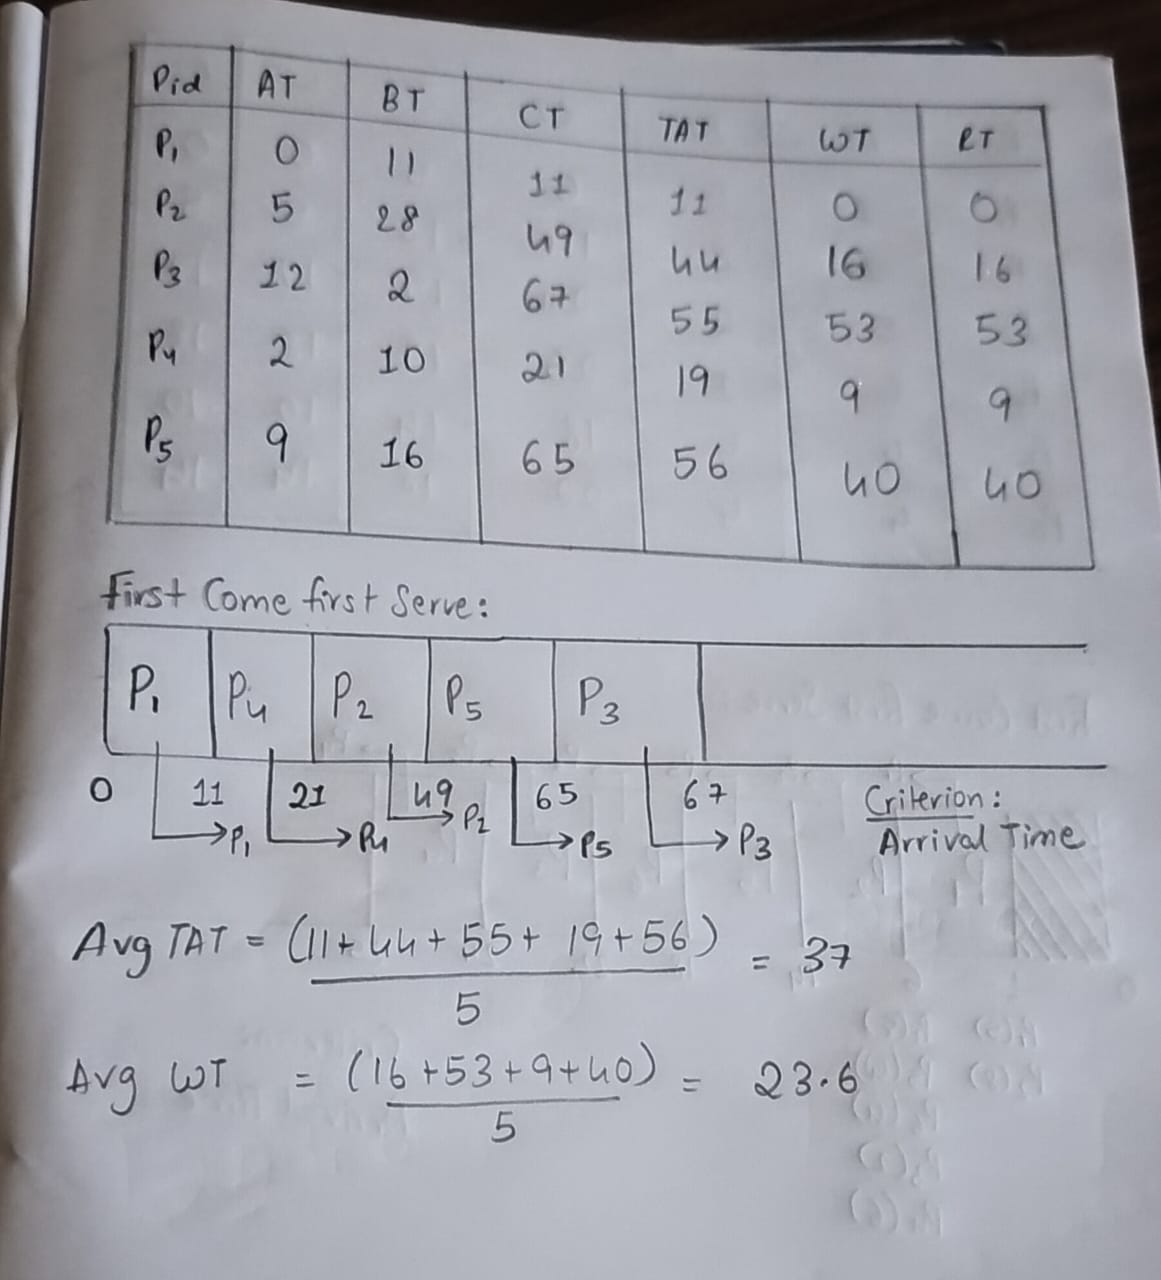 Pid AT BT CT TAT WT RT
P1 0 11 11 11 0 0
P2 5 28 49 44 16 16
P3 12 2 67 55 53 53
P4 2 10 21 19 9 9
P5 9 16 65 56 40 40
First Come first Serve:
P1 P4 P2 P5 P3
0 11 21 49 65 67 Criterion:
P1 P4 P2 P5 P3 Arrival Time
Avg TAT = (11+44+55+19+56) = 37
5
Avg WT = (16+53+9+40) = 23.6
5